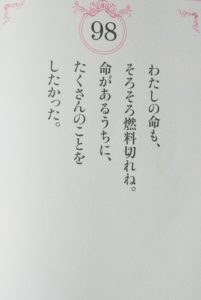 98
わたしの命も、
そろそろ燃料切れね。
命があるうちに、
たくさんのことを
したかった。